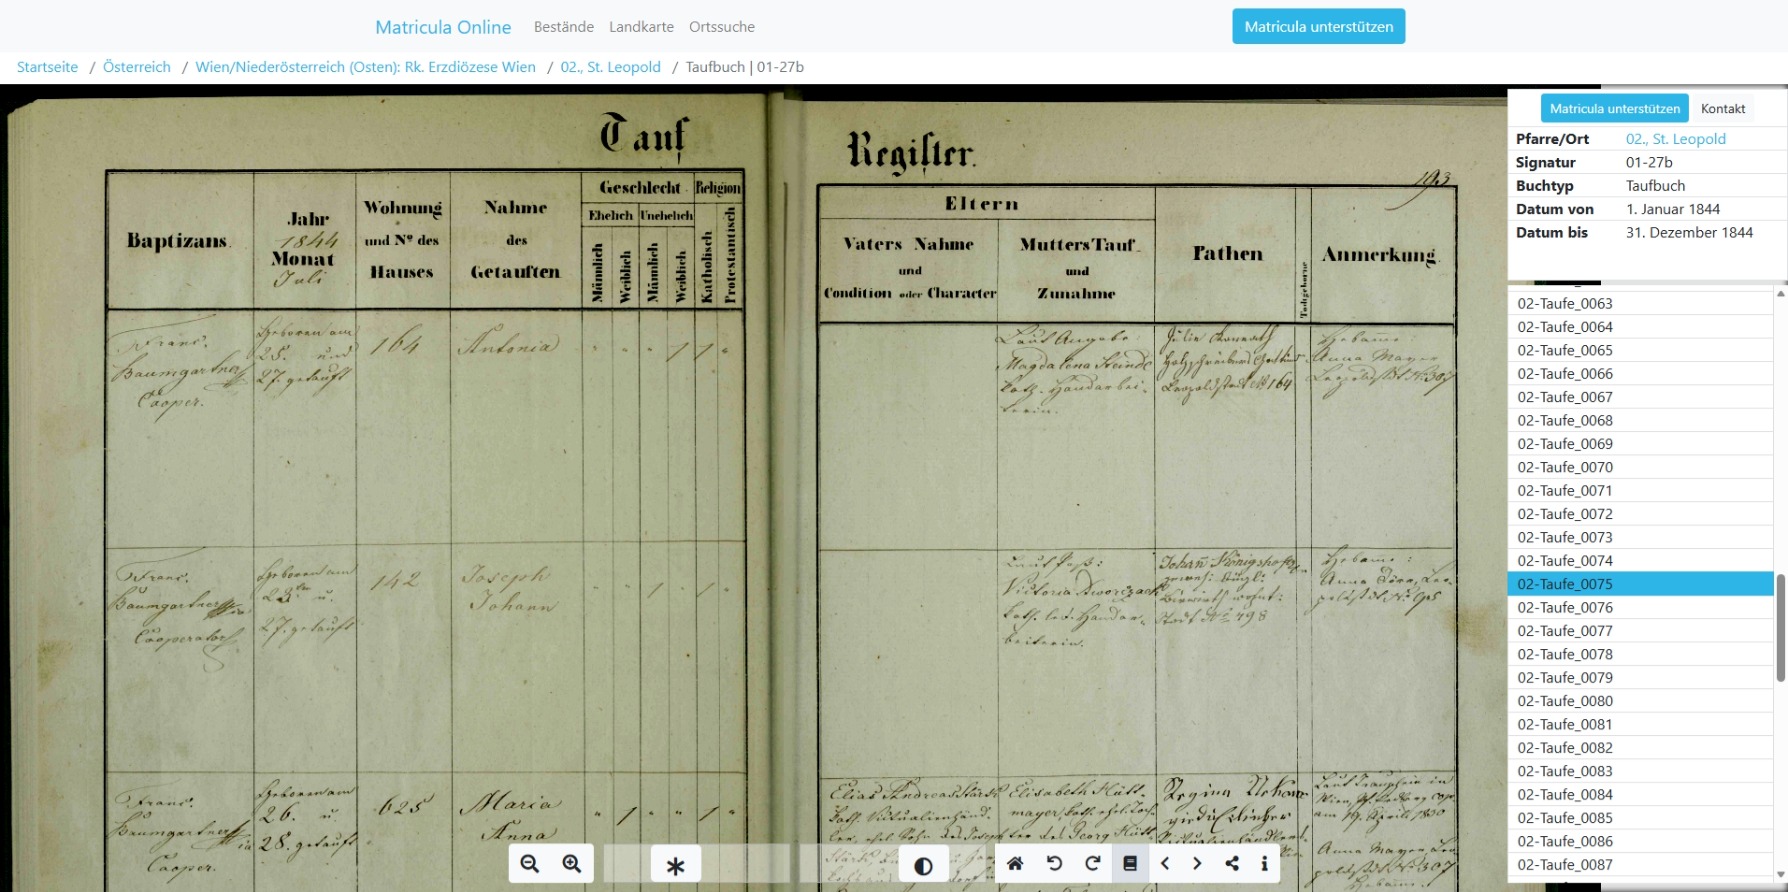 Matricula Online Bestände Landkarte Ortssuche Matricula unterstützen
Startseite / Österreich / Wien/Niederösterreich (Osten): Rk. Erzdiözese Wien / 02., St. Leopold / Taufbuch | 01-27b
Tauf
Baptizans.
Jahr
1844
Monat
Juli
Wohnung
und Nº des
Hauses
Nahme
des
Getauften
Geschlecht
Religion
Ehelich
Unehelich
Männlich
Weiblich
Männlich
Weiblich
Katholisch
Protestantisch
Franc.
Baumgartner
Cooper.
Geboren am
25. und
27. getauft
164
Antonia
Franc.
Baumgartner
Cooperator
Geboren am
u.
27. getauft
142
Joseph
Johann
Franc.
Baumgartner
Cooper.
Geboren am
26. u.
28. getauft
625
Maria
Anna
Register.
193
Eltern
Vaters Nahme
und
Condition oder Character
Mutters Tauf-
und
Zunahme
Pathen
Todtgeborne
Anmerkung.
Laut Angabe:
Magdalena
kath. Handarbei-
terin.
Julie
Leopoldstadt Nº 164
Hebamme:
Anna Mayer
Leopoldstdt Nº 307
Laut Paß:
Victoria
kath. led. Handar-
beiterin.
Johann Königshofer
wohnt:
Stadt Nº 498
Hebamme:
Anna
Elias Andreas
kath.
Elisabeth Hütt-
mayer, kath.
des Georg Hütt-
Regina
Laut Trauschein in
Wien,
am 19. April 1830
Anna Mayer, Leo-
poldstdt Nº 307
Hebamme
Matricula unterstützen Kontakt
Pfarre/Ort 02., St. Leopold
Signatur 01-27b
Buchtyp Taufbuch
Datum von 1. Januar 1844
Datum bis 31. Dezember 1844
02-Taufe_0063
02-Taufe_0064
02-Taufe_0065
02-Taufe_0066
02-Taufe_0067
02-Taufe_0068
02-Taufe_0069
02-Taufe_0070
02-Taufe_0071
02-Taufe_0072
02-Taufe_0073
02-Taufe_0074
02-Taufe_0075
02-Taufe_0076
02-Taufe_0077
02-Taufe_0078
02-Taufe_0079
02-Taufe_0080
02-Taufe_0081
02-Taufe_0082
02-Taufe_0083
02-Taufe_0084
02-Taufe_0085
02-Taufe_0086
02-Taufe_0087